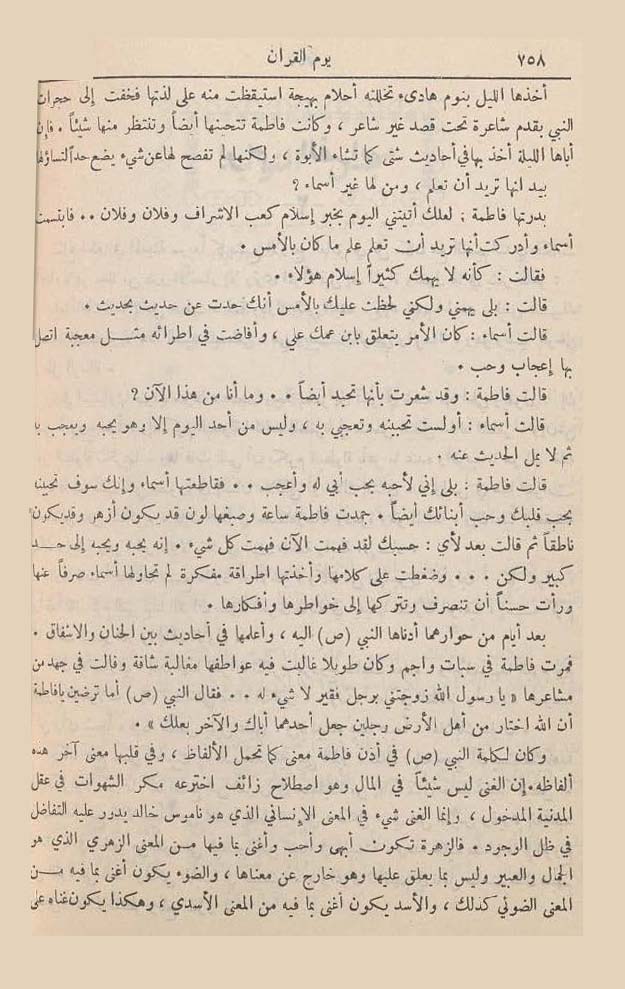 ٧٥٨ يوم القران
أخذها الليل بنوم هادىء تخللته أحلام بهيجة استيقظت منه على لذتها فخفت إلى حجرات
النبي بقدم شاعرة تحت قصد غير شاعر ، وكانت فاطمة تتحينها أيضاً وتنتظر منها شيئاً . فإن
أباها الليلة أخذ بها في أحاديث شتى كما تشاء الأبوة ، ولكنها لم تفصح لها عن شيء يضع حداً لتساؤلها
بيد انها تريد أن تعلم ، ومن لها غير أسماء ?
بدرتها فاطمة : لعلك أتيتني اليوم بخبر إسلام كعب الاشراف وفلان وفلان . . فابتسمت
أسماء وأدركت أنها تريد أن تعلم علم ما كان بالأمس .
فقالت : كأنه لا يهمك كثيراً إسلام هؤلاء .
قالت : بلى يهمني ولكني لحظت عليك بالأمس أنك حدت عن حديث بحديث .
قالت أسماء : كان الأمر يتعلق بابن عمك علي ، وأفاضت في اطرائه مثل معجبة اتصل
بها إعجاب وحب .
قالت فاطمة : وقد شعرت بأنها تحيد أيضاً . . وما أنا من هذا الآن ?
قالت أسماء : أولست تحبينه وتعجبي به ، وليس من أحد اليوم إلا وهو يحبه ويعجب به
ثم لا يمل الحديث عنه .
قالت فاطمة : بلى إني لأحبه بحب أبي له وأعجب . . فقاطعتها أسماء وإنك سوف تحبينه
بحب قلبك وحب أبنائك أيضاً . جمدت فاطمة ساعة وصبغها لون قد يكون أزهر وقد يكون
ناطقاً ثم قالت بعد لأي : حسبك لقد فهمت الآن فهمت كل شيء . إنه يحبه ويحبه إلى حد
كبير ولكن . . . وضغطت على كلامها وأخذتها اطراقة مفكرة لم تحاولها أسماء صرفاً عنها
ورأت حسناً أن تنصرف وتتركها إلى خواطرها وأفكارها .
بعد أيام من حوارهما أدناها النبي (ص) اليه ، وأعلمها في أحاديث بين الحنان والاشفاق .
فمرت فاطمة في سبات واجم وكان طويلا غالبت فيه عواطفها مغالبة شاقة وقالت في جهد من
مشاعرها « يا رسول الله زوجتني برجل فقير لا شيء له . . فقال النبي (ص) أما ترضين يا فاطمة
أن الله اختار من أهل الأرض رجلين جعل أحدهما أباك والآخر بعلك » .
وكان لكلمة النبي (ص) في أذن فاطمة معنى كما تحمل الألفاظ ، وفي قلبها معنى آخر هذه
ألفاظه . إن الغنى ليس شيئاً في المال وهو اصطلاح زائف اخترعه مكر الشهوات في عقل
المدنية المدخول ، وإنما الغنى شيء في المعنى الإنساني الذي هو ناموس خالد يدور عليه التفاضل
في ظل الوجود . فالزهرة تكون أبهى وأحب وأغنى بما فيها من المعنى الزهري الذي هو
الجمال والعبير وليس بما يعلق عليها وهو خارج عن معناها ، والضوء يكون أغنى بما فيه من
المعنى الضوئي كذلك ، والأسد يكون أغنى بما فيه من المعنى الأسدي ، وهكذا يكون غناه على